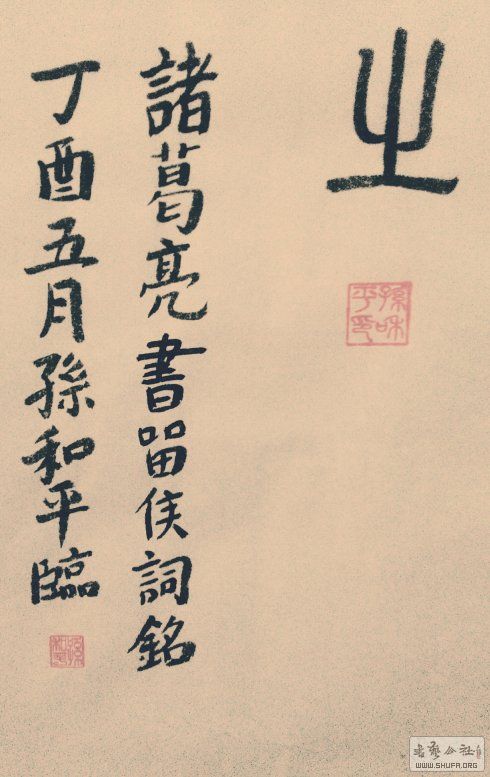 之
孫和平印
諸葛亮書留侯詞銘
丁酉五月孫和平臨
WWW.SHUFA.ORG